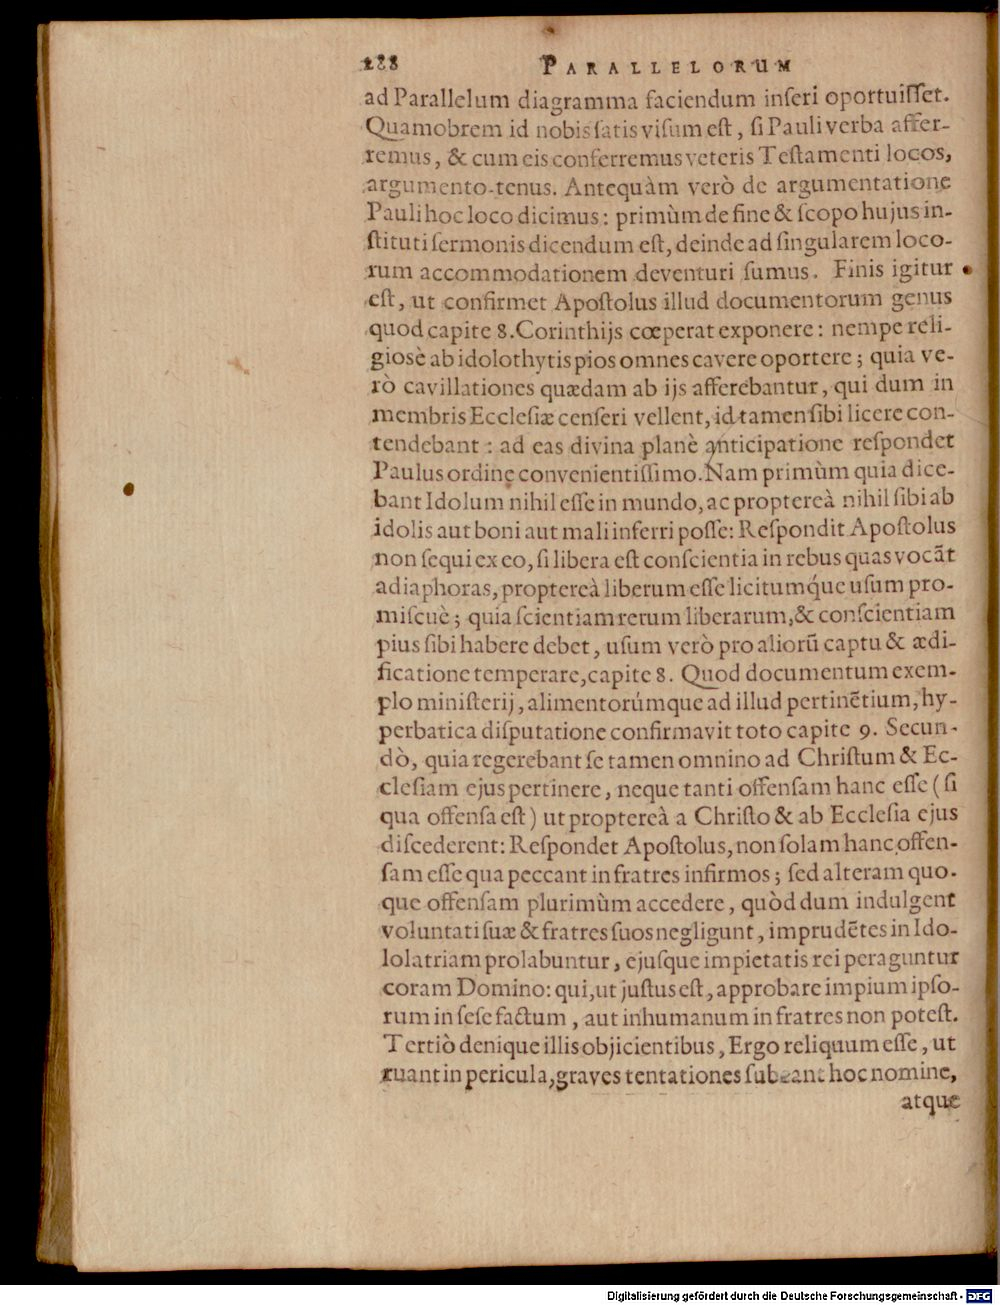 288 PARALLELORUM
ad Parallelum diagramma faciendum inſeri oportuiſſet.
Quamobrem id nobis ſatis viſum eſt, ſi Pauli verba affer-
remus, & cum eis conferremus veteris Teſtamenti locos,
argumento-tenus. Antequàm verò de argumentatione
Pauli hoc loco dicimus: primùm de fine & ſcopo hujus in-
ſtituti ſermonis dicendum eſt, deinde ad ſingularem loco-
rum accommodationem deventuri ſumus. Finis igitur
eſt, ut confirmet Apoſtolus illud documentorum genus
quod capite 8. Corinthijs cœperat exponere: nempe reli-
gioſè ab idolothytis pios omnes cavere oportere; quia ve-
rò cavillationes quædam ab ijs afferebantur, qui dum in
membris Eccleſiæ cenſeri vellent, id tamen ſibi licere con-
tendebant: ad eas divina planè anticipatione reſpondet
Paulus ordine convenientiſſimo. Nam primùm quia dice-
bant Idolum nihil eſſe in mundo, ac proptereà nihil ſibi ab
idolis aut boni aut mali inferri poſſe: Reſpondit Apoſtolus
non ſequi ex eo, ſi libera eſt conſcientia in rebus quas vocãt
adiaphoras, proptereà liberum eſſe licitumq́ue uſum pro-
miſcuè; quia ſcientiam rerum liberarum, & conſcientiam
pius ſibi habere debet, uſum verò pro aliorũ captu & ædi-
ficatione temperare, capite 8. Quod documentum exem-
plo miniſterij, alimentorúmque ad illud pertinẽtium, hy-
perbatica diſputatione confirmavit toto capite 9. Secun-
dò, quia regerebant ſe tamen omnino ad Chriſtum & Ec-
cleſiam ejus pertinere, neque tanti offenſam hanc eſſe (ſi
qua offenſa eſt) ut proptereà a Chriſto & ab Eccleſia ejus
diſcederent: Reſpondet Apoſtolus, non ſolam hanc offen-
ſam eſſe qua peccant in fratres infirmos; ſed alteram quo-
que offenſam plurimùm accedere, quòd dum indulgent
voluntati ſuæ & fratres ſuos negligunt, imprudẽtes in Ido-
lolatriam prolabuntur, ejuſque impietatis rei peraguntur
coram Domino: qui, ut juſtus eſt, approbare impium ipſo-
rum in ſeſe factum, aut inhumanum in fratres non poteſt.
Tertiò denique illis objicientibus, Ergo reliquum eſſe, ut
ruant in pericula, graves tentationes ſubeant hoc nomine,
atque
Digitalisierung gefördert durch die Deutsche Forschungsgemeinschaft - DFG